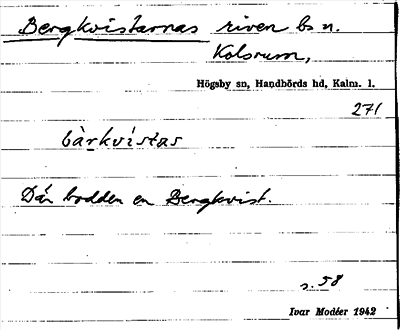 Bergkvistarnas riven bs n.
Kolsrum,
Högsby sn, Handbörds hd, Kalm. l.
271
bàrkvistas
Där bodde en Bergkvist.
s. 58
Ivar Modéer 1942